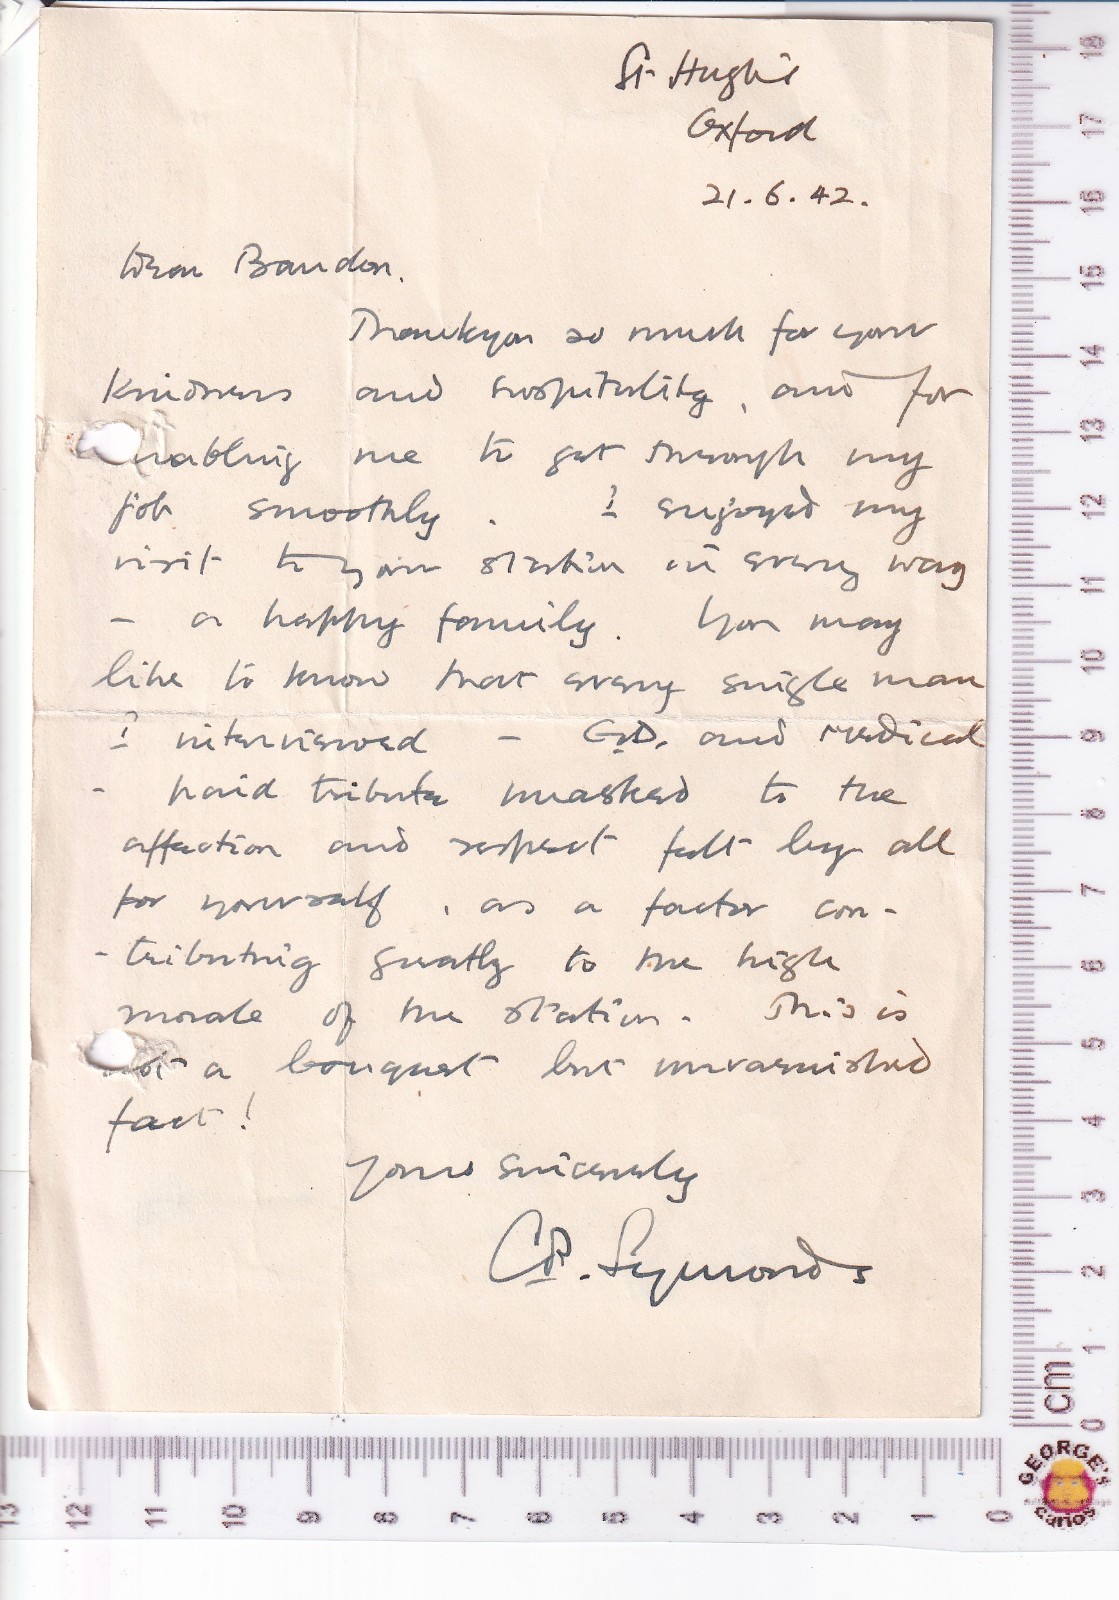 St Hugh's
Oxford
21.6.42.
Dear Bandon.
Thankyou so much for your
kindness and hospitality, and for
enabling me to get through my
job smoothly. I enjoyed my
visit to your station in every way
- a happy family. You may
like to know that every single man
I interviewed - G.D. and medical
- paid tribute unasked to the
affection and respect felt by all
for yourself, as a factor con-
-tributing greatly to the high
morale of the station. This is
not a bouquet but unvarnished
fact!
Yours sincerely
CP. Symonds
18
17
16
15
14
13
12
11
10
9
8
7
6
5
4
3
2
1
0
cm
13 12 11 10 9 8 7 6 5 4 3 2 1 0
GEORGE'S
curios